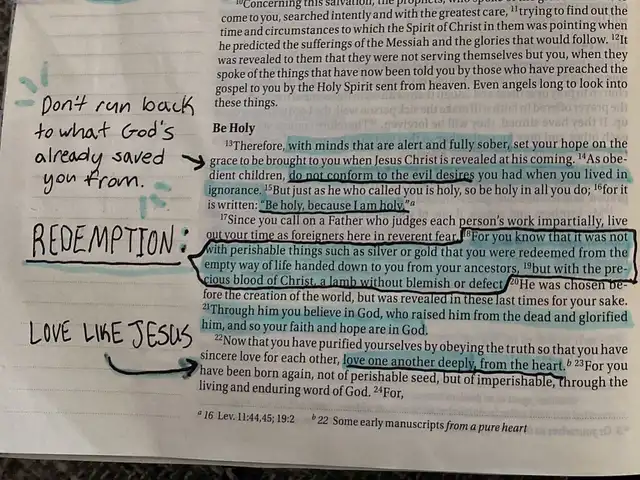 Don't run back
to what God's
already saved
you from.
REDEMPTION:
LOVE LIKE JESUS
10Concerning this salvation, the prophets, who spoke of the grace
come to you, searched intently and with the greatest care, 11trying to find out the
time and circumstances to which the Spirit of Christ in them was pointing when
he predicted the sufferings of the Messiah and the glories that would follow. 12It
was revealed to them that they were not serving themselves but you, when they
spoke of the things that have now been told you by those who have preached the
gospel to you by the Holy Spirit sent from heaven. Even angels long to look into
these things.
Be Holy
13Therefore, with minds that are alert and fully sober, set your hope on the
grace to be brought to you when Jesus Christ is revealed at his coming. 14As obe-
dient children, do not conform to the evil desires you had when you lived in
ignorance. 15But just as he who called you is holy, so be holy in all you do; 16for it
is written: "Be holy, because I am holy."a
17Since you call on a Father who judges each person's work impartially, live
out your time as foreigners here in reverent fear. 18For you know that it was not
with perishable things such as silver or gold that you were redeemed from the
empty way of life handed down to you from your ancestors, 19but with the pre-
cious blood of Christ, a lamb without blemish or defect. 20He was chosen be-
fore the creation of the world, but was revealed in these last times for your sake.
21Through him you believe in God, who raised him from the dead and glorified
him, and so your faith and hope are in God.
22Now that you have purified yourselves by obeying the truth so that you have
sincere love for each other, love one another deeply, from the heart.b 23For you
have been born again, not of perishable seed, but of imperishable, through the
living and enduring word of God. 24For,
a 16 Lev. 11:44,45; 19:2 b 22 Some early manuscripts from a pure heart